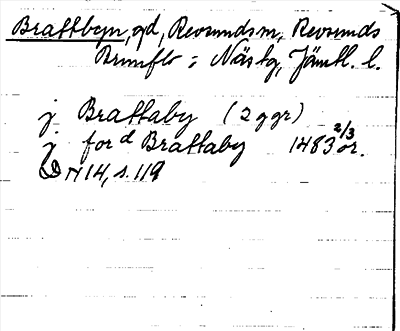 Brattbyn, gd, Revsunds sn, Revsunds
Brunflo, Näs tg, Jämtl. l.
j Brattaby (2 ggr)
j ford Brattaby 1483 2/3 or.
DN 14, s. 119